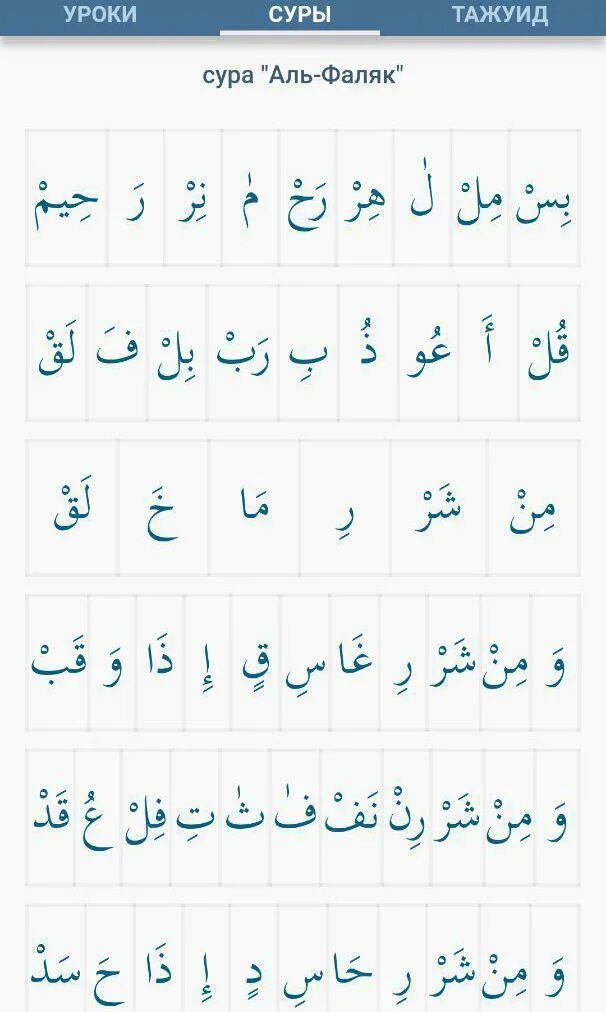 УРОКИ СУРЫ ТАЖУИД
сура "Аль-Фаляк"
بِسْ مِلْ لٰ هِرْ رَحْ مٰ نِرْ رَ حِيمْ
قُلْ أَ عُو ذُ بِ رَبْ بِلْ فَ لَقْ
مِنْ شَرْ رِ مَا خَ لَقْ
وَ مِنْ شَرْ رِ غَا سِ قٍ إِ ذَا وَ قَبْ
وَ مِنْ شَرْ رِنْ نَفْ فٰ ثٰ تِ فِلْ عُ قَدْ
وَ مِنْ شَرْ رِ حَا سِ دٍ إِ ذَا حَ سَدْ